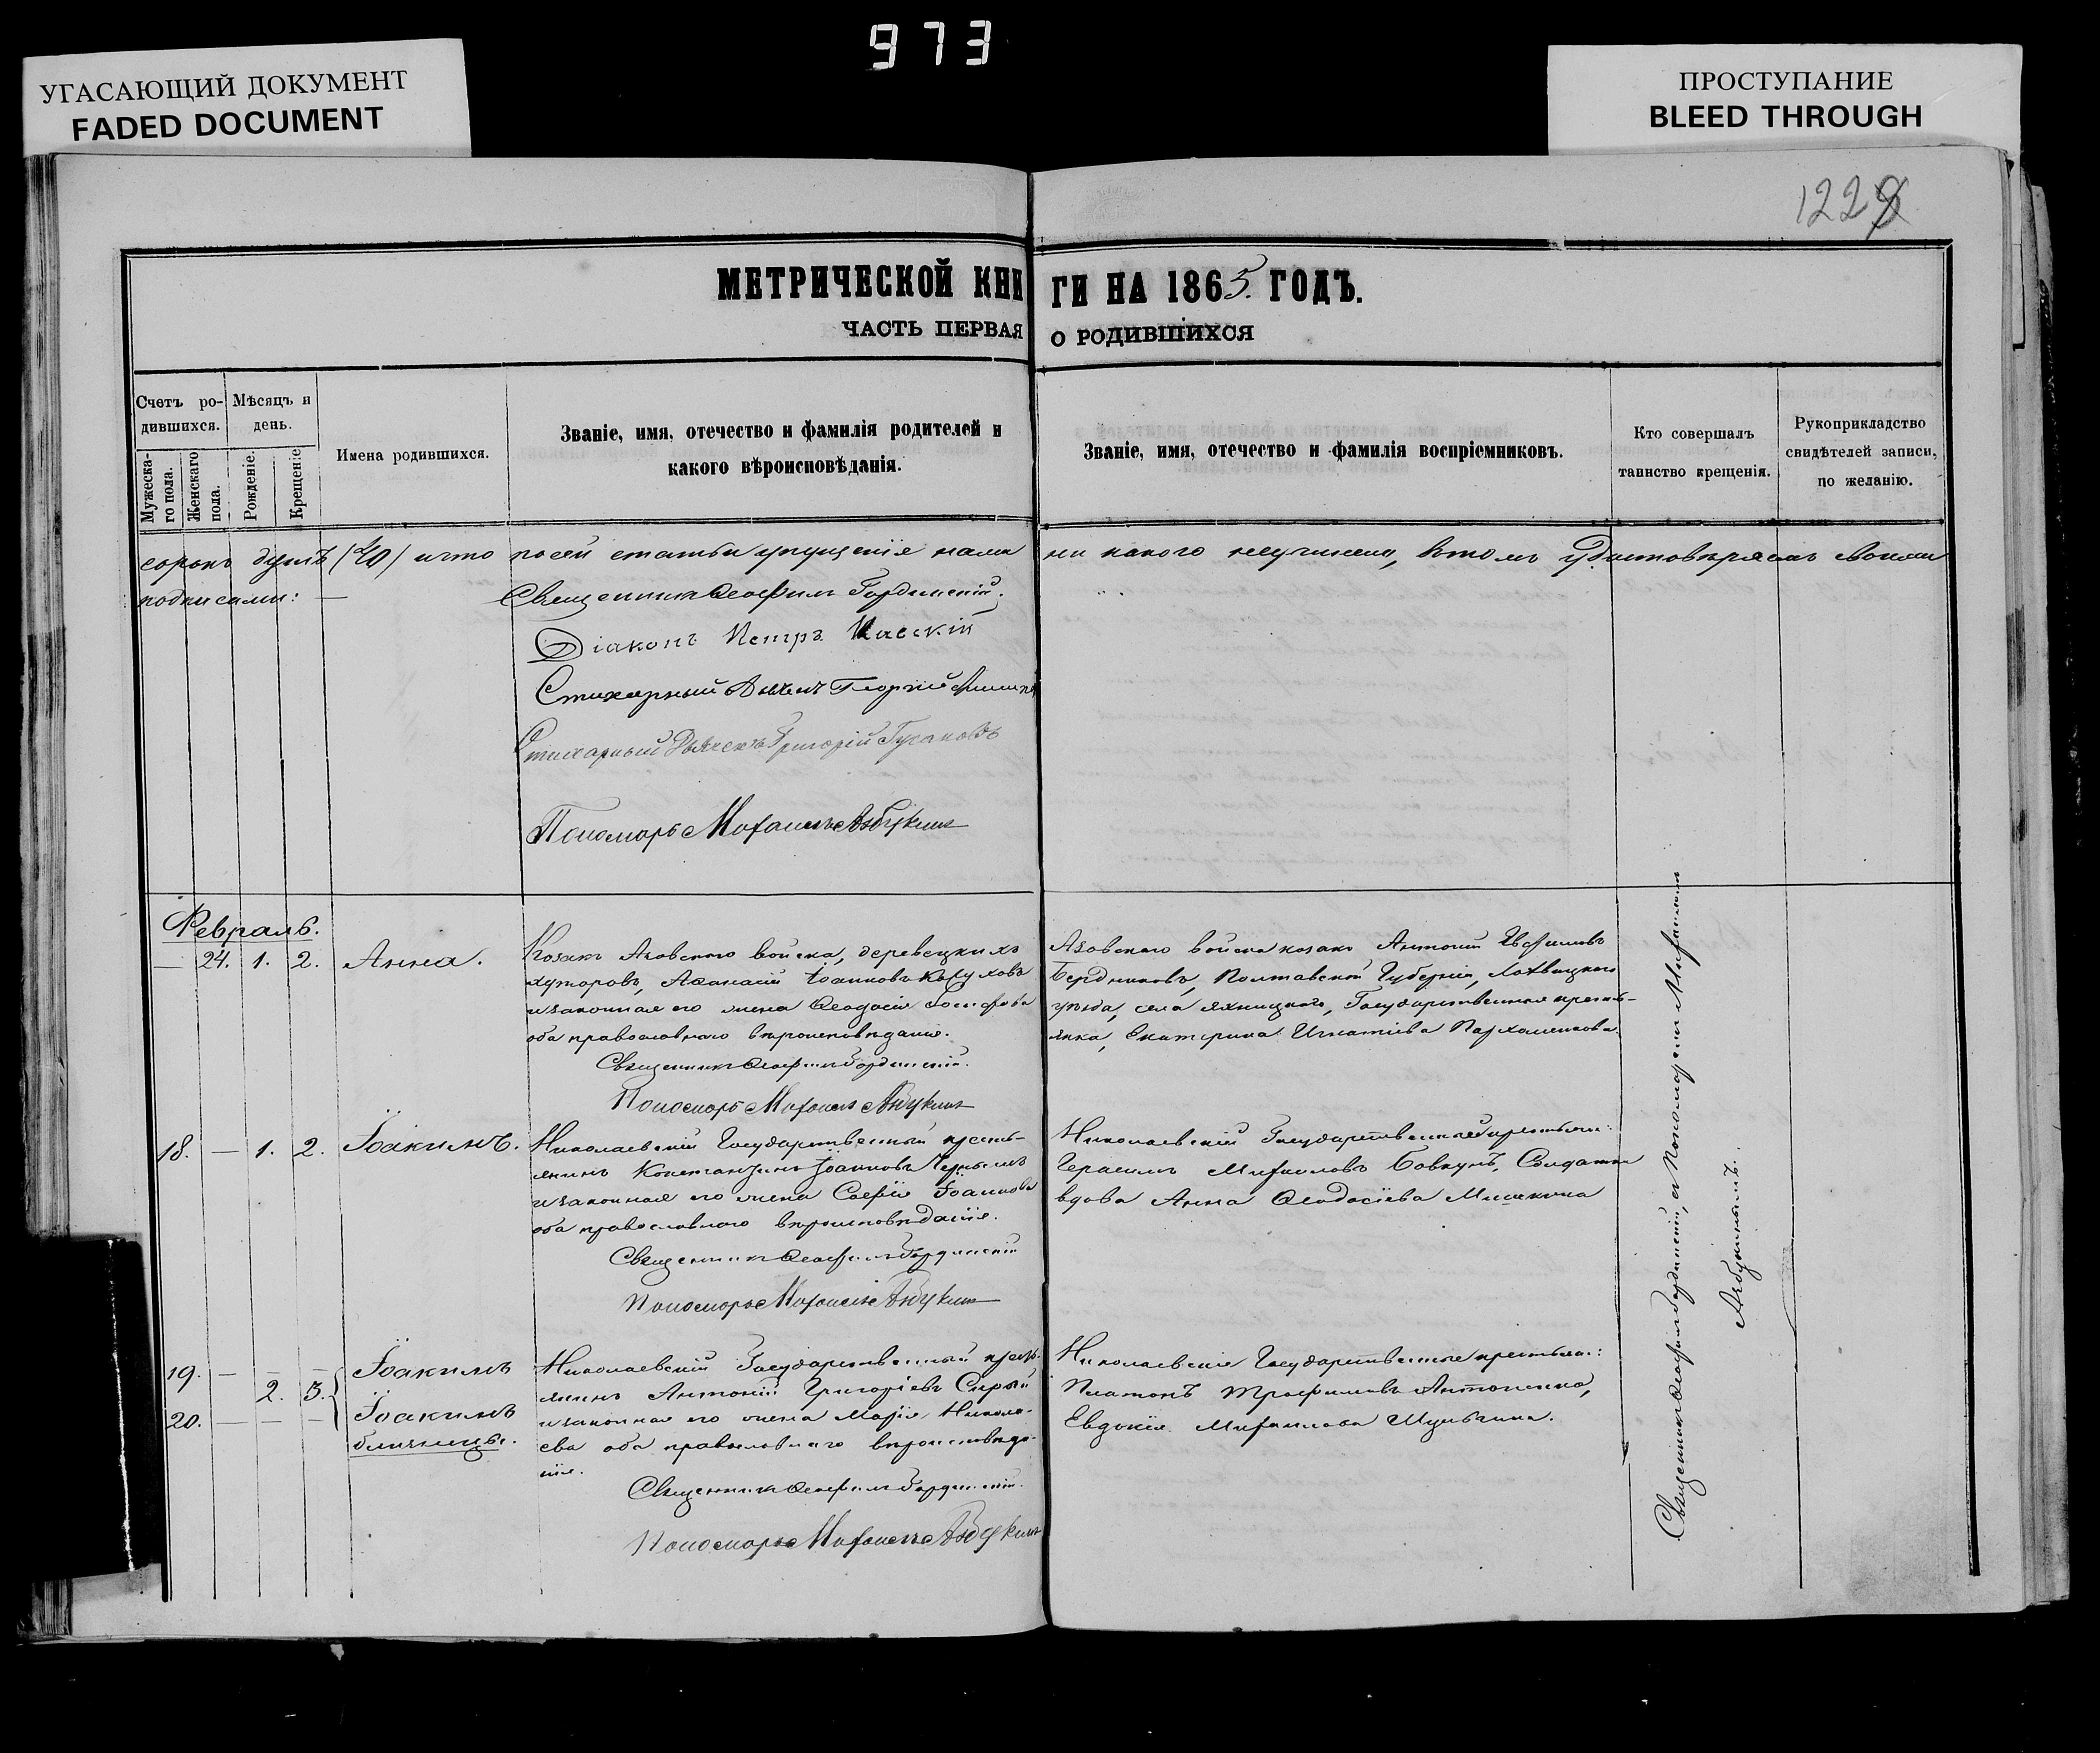 973
УГАСАЮЩИЙ ДОКУМЕНТ
FADED DOCUMENT
ПРОСТУПАНИЕ
BLEED THROUGH
1229
МЕТРИЧЕСКОЙ КНИГИ НА 1865. ГОДЪ.
ЧАСТЬ ПЕРВАЯ О РОДИВШИХСЯ
Счетъ ро-
дившихся.
Мужеска-
го пола.
Женскаго
пола.
Мѣсяцъ и
день.
Рожденіе.
Крещеніе
Имена родившихся.
Званіе, имя, отечество и фамилія родителей и
какого вѣроисповѣданія.
Званіе, имя, отечество и фамилія воспріемниковъ.
Кто совершалъ
таинство крещенія.
Рукоприкладство
свидѣтелей записи,
по желанію.
сорокъ душъ (40) и что по сей статьи упущенія нами ни какого неучинено, втомъ удостовѣряемъ своими
подписами: —
Священникъ Ѳеофилъ Гординскій.
Діаконъ Петръ
Стихарный Дьячекъ Георгій
Стихарный Дьячекъ Григорій Гусаковъ
Пономарь Михаилъ Азбукинъ
Февраль.
— 24. 1. 2. Анна.
Козакъ Азовского войска, деревецкихъ
хуторовъ, Аѳанасій Іоанновъ
и законная его жена Ѳеодосія Іосифова
оба православного вѣроисповѣданія.
Священникъ Ѳеофилъ Гординскій.
Пономарь Михаилъ Азбукинъ
Азовского войска козакъ Антоній
Бердниковъ, Полтавской Губерніи, Лохвицкого
уѣзда, села Яхницкого, Государственная кресть-
янка, Екатерина Игнатіева Пархоменкова.
18. — 1. 2. Іоакимъ.
Николаевскій Государственный кресть-
янинъ Константинъ Іоанновъ
и законная его жена Софія Іоаннова
оба православного вѣроисповѣданія.
Священникъ Ѳеофилъ Гординскій
Пономарь Михаилъ Азбукинъ
Николаевскій Государственный крестьян:
Герасимъ Михаиловъ Бовкунъ, Солдатка
вдова Анна Ѳеодосіева Мишкина
19. — 2. 3. Іоакимъ
20. — Іоакимъ
близнецы.
Николаевскій Государственный кресть-
янинъ Антоній Григоріевъ Сирый
и законная его жена Марія Никола-
ева оба православного вѣроисповѣда-
нія.
Священникъ Ѳеофилъ Гординскій.
Пономарь Михаилъ Азбукинъ
Николаевскіе Государственные крестьян:
Платонъ Трофимовъ Антоненко,
Евдокія Михаилова
Священникъ Ѳеофилъ Гординскій, съ Пономаремъ Михаиломъ
Азбукинымъ.